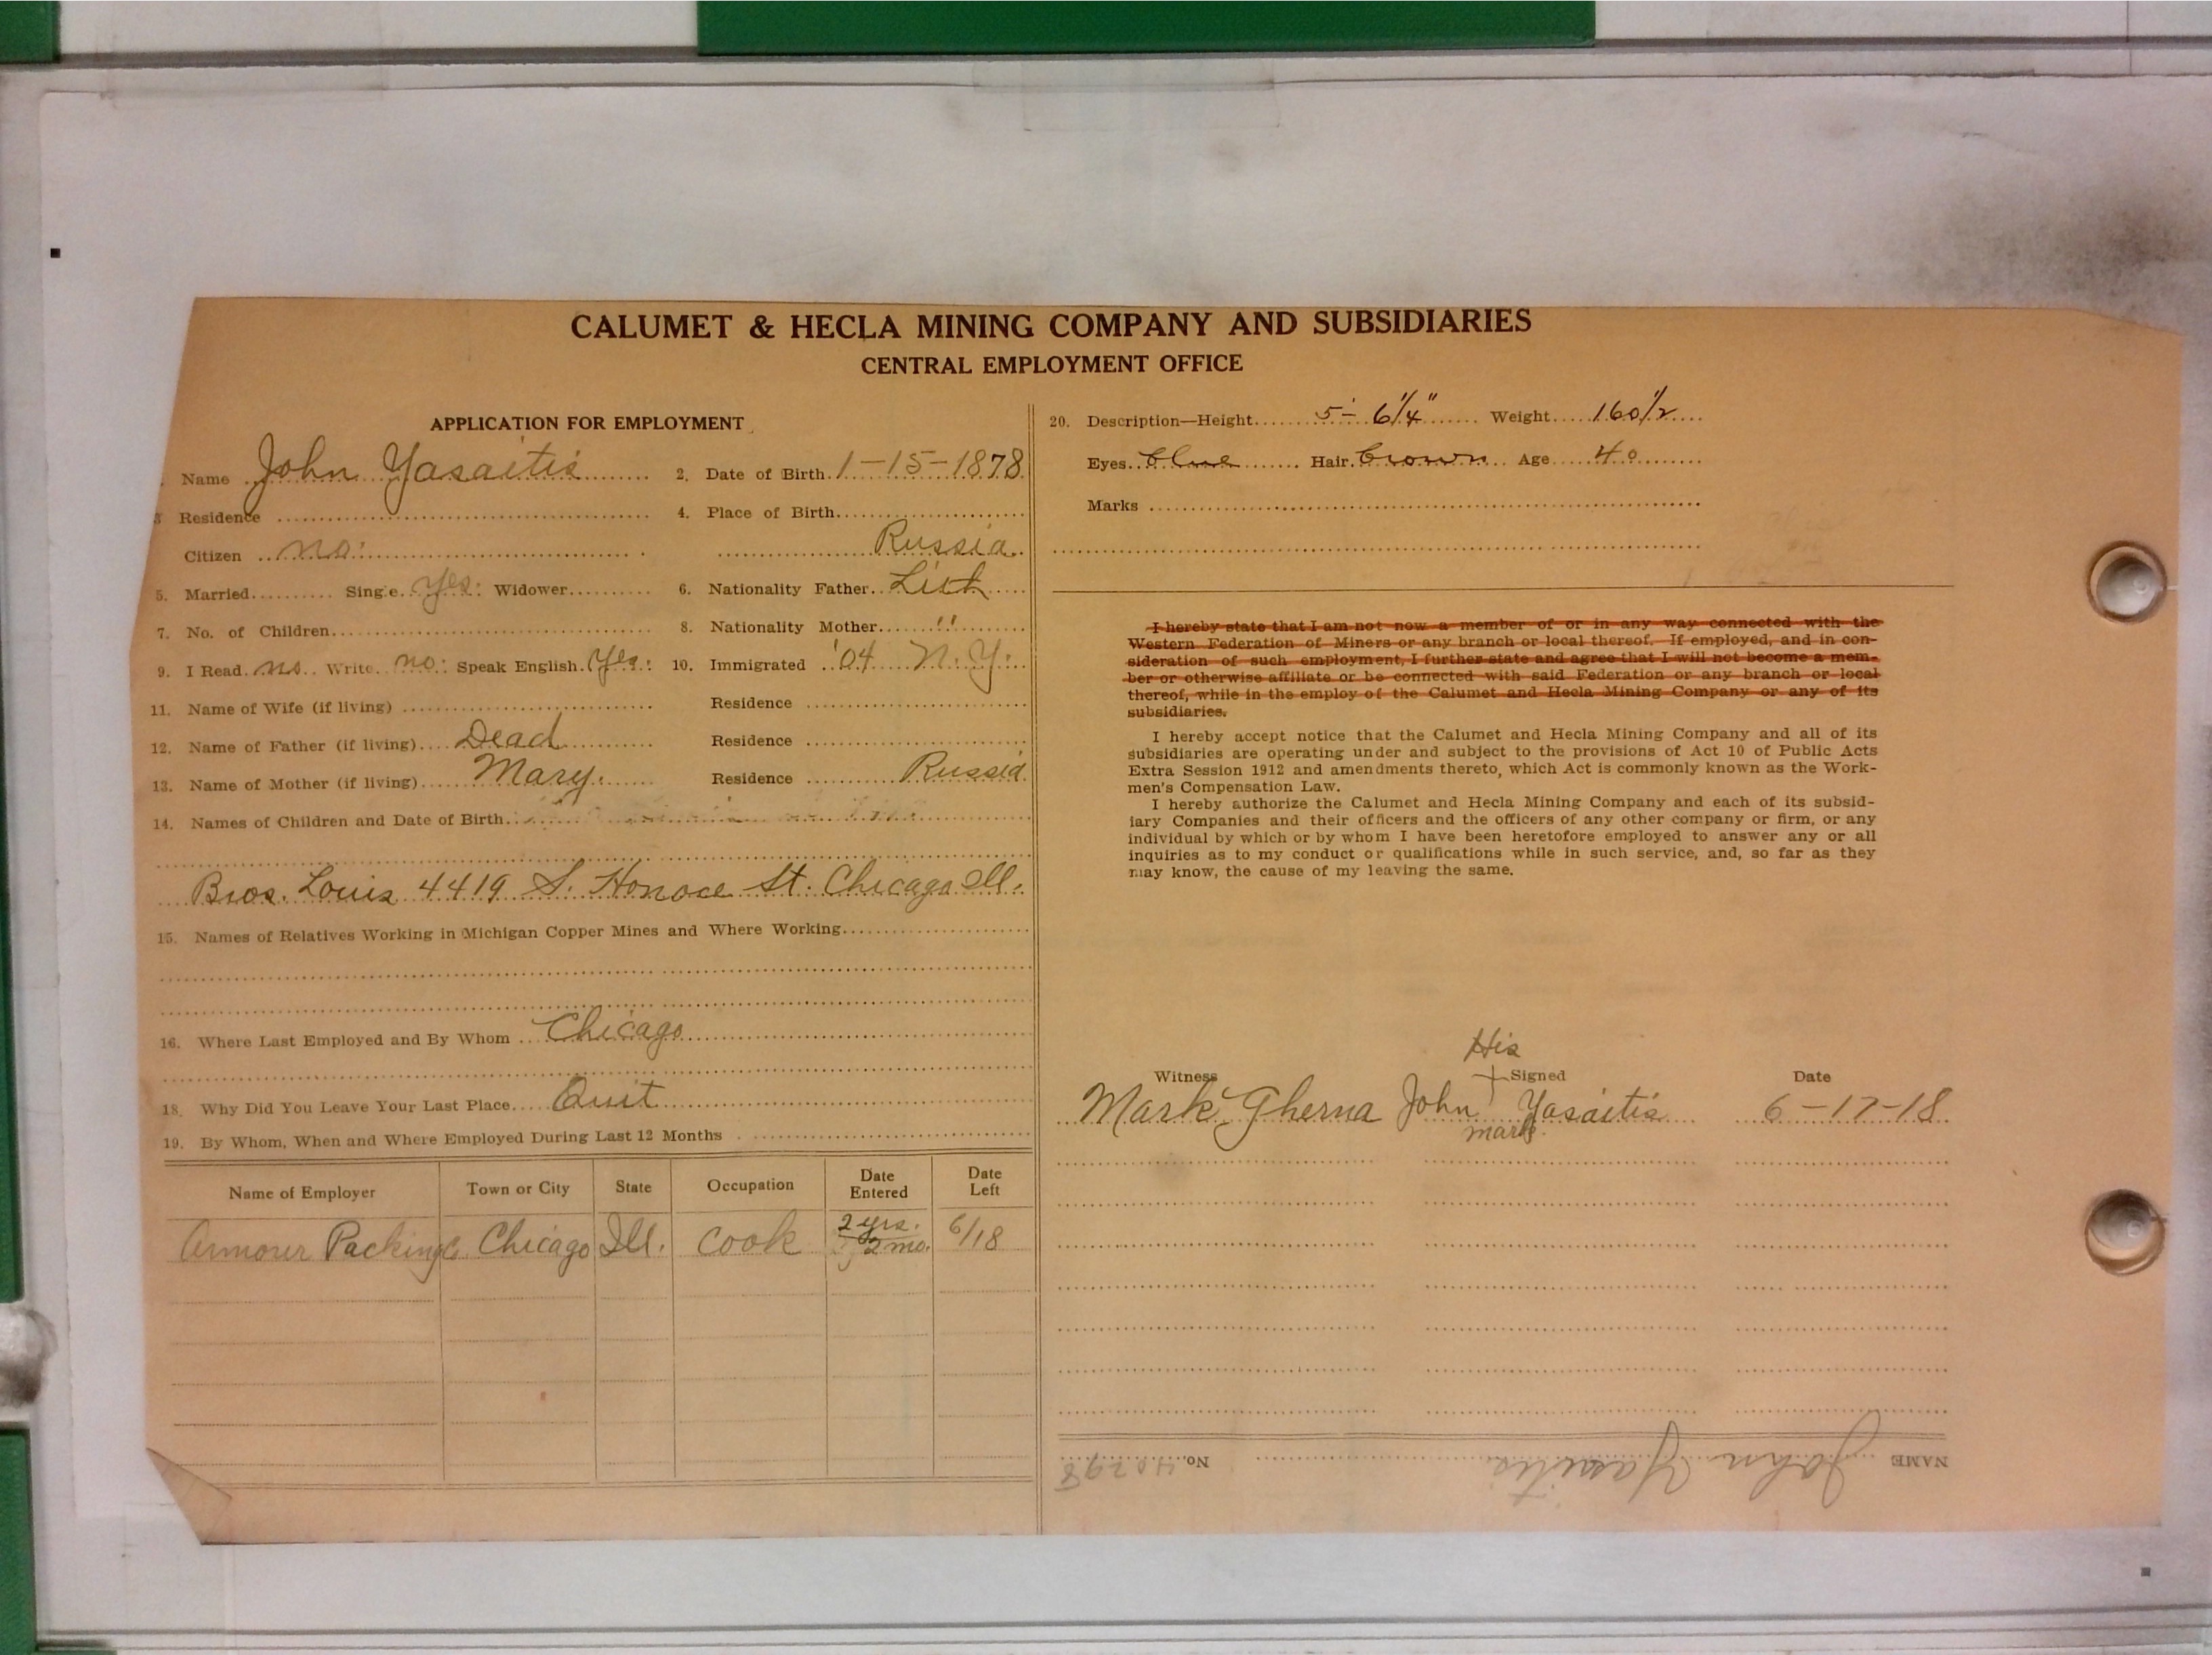 CALUMET & HECLA MINING COMPANY AND SUBSIDIARIES
CENTRAL EMPLOYMENT OFFICE
APPLICATION FOR EMPLOYMENT
Name John Yasaitis
2. Date of Birth. 1-15-1878
3 Residence
4. Place of Birth
Citizen no.
Russia
5. Married Single. Yes. Widower
6. Nationality Father. Lith
7. No. of Children
8. Nationality Mother "
9. I Read no Write no. Speak English. Yes.
10. Immigrated '04 N.Y.
11. Name of Wife (if living)
Residence
12. Name of Father (if living) Dead
Residence
13. Name of Mother (if living) Mary.
Residence Russia
14. Names of Children and Date of Birth
Bros. Louis 4419 S. Honore St. Chicago Ill.
15. Names of Relatives Working in Michigan Copper Mines and Where Working
16. Where Last Employed and By Whom Chicago
18. Why Did You Leave Your Last Place Quit
19. By Whom, When and Where Employed During Last 12 Months
Name of Employer Town or City State Occupation Date Entered Date Left
Armour Packing Co Chicago Ill. Cook 2 yrs. 2 mo. 6/18
20. Description—Height 5'- 6 1/4" Weight 160 1/2
Eyes. blue Hair. brown Age 40
Marks
I hereby state that I am not now a member of or in any way connected with the
Western Federation of Miners or any branch or local thereof. If employed, and in con-
sideration of such employment, I further state and agree that I will not become a mem-
ber or otherwise affiliate or be connected with said Federation or any branch or local
thereof, while in the employ of the Calumet and Hecla Mining Company or any of its
subsidiaries.
I hereby accept notice that the Calumet and Hecla Mining Company and all of its
subsidiaries are operating under and subject to the provisions of Act 10 of Public Acts
Extra Session 1912 and amendments thereto, which Act is commonly known as the Work-
men's Compensation Law.
I hereby authorize the Calumet and Hecla Mining Company and each of its subsid-
iary Companies and their officers and the officers of any other company or firm, or any
individual by which or by whom I have been heretofore employed to answer any or all
inquiries as to my conduct or qualifications while in such service, and, so far as they
may know, the cause of my leaving the same.
His
Witness Signed Date
Mark Gherna John + Yasaitis 6-17-18
mark
NAME John Yasaitis No. 40298